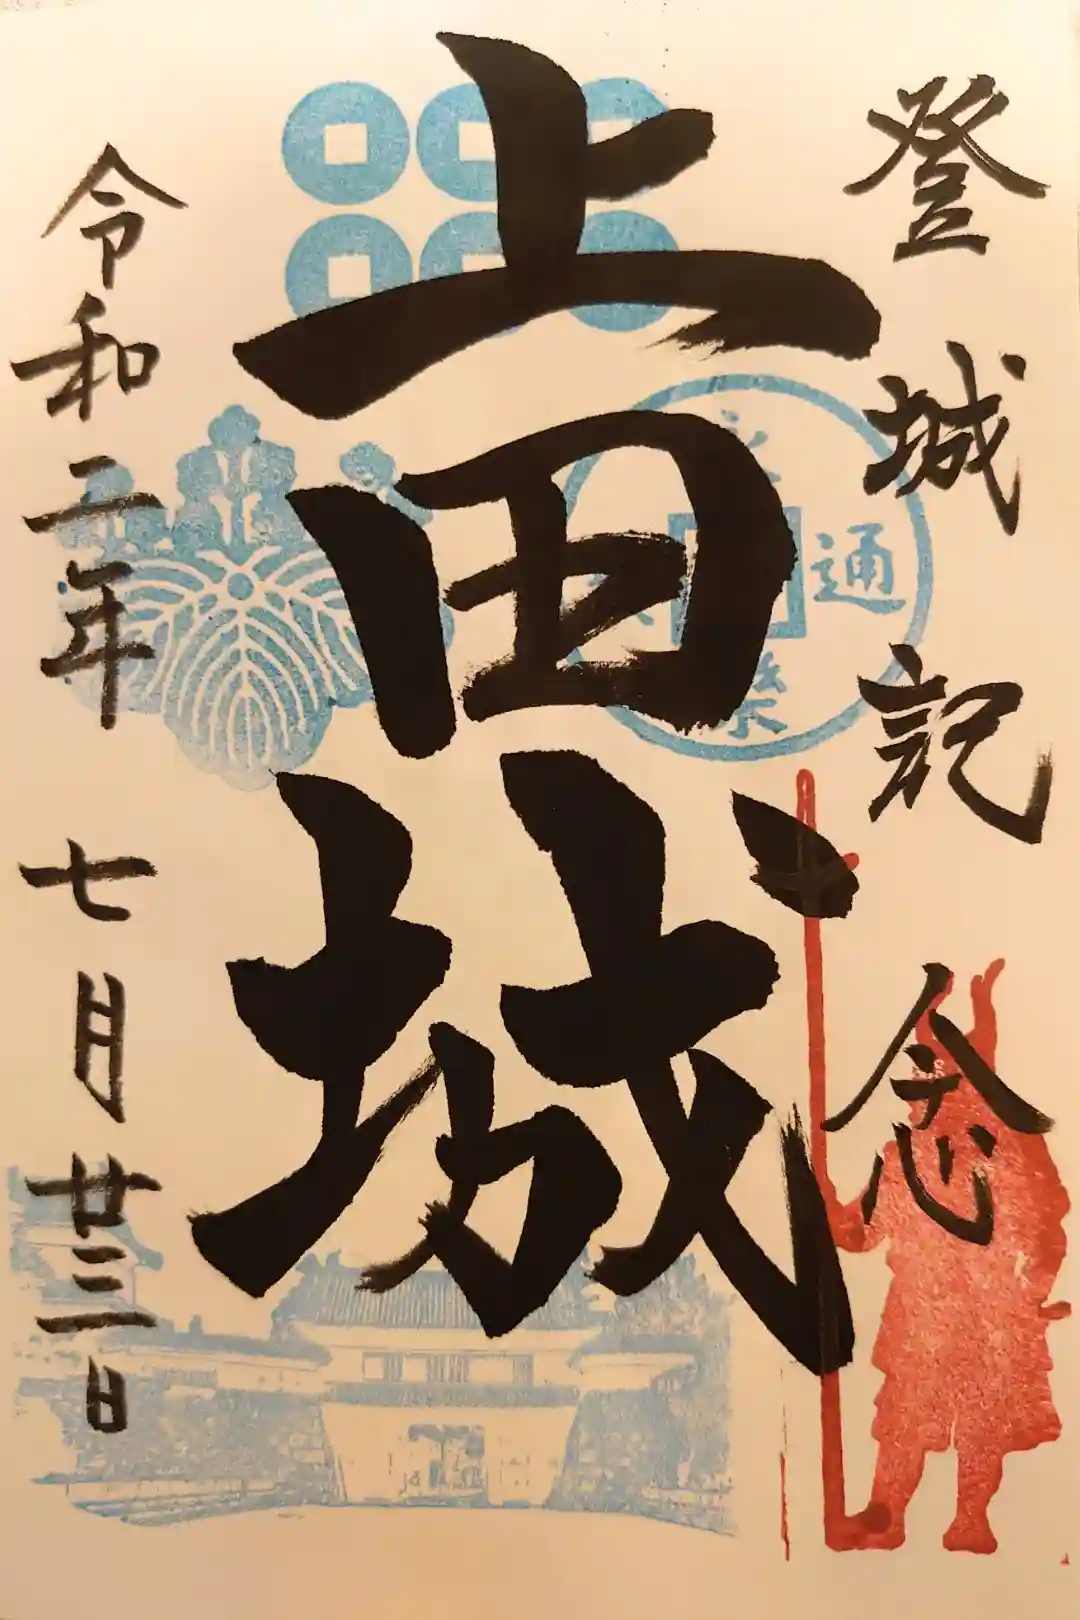 登城記念
上田城
通
令和二年 七月廿三日